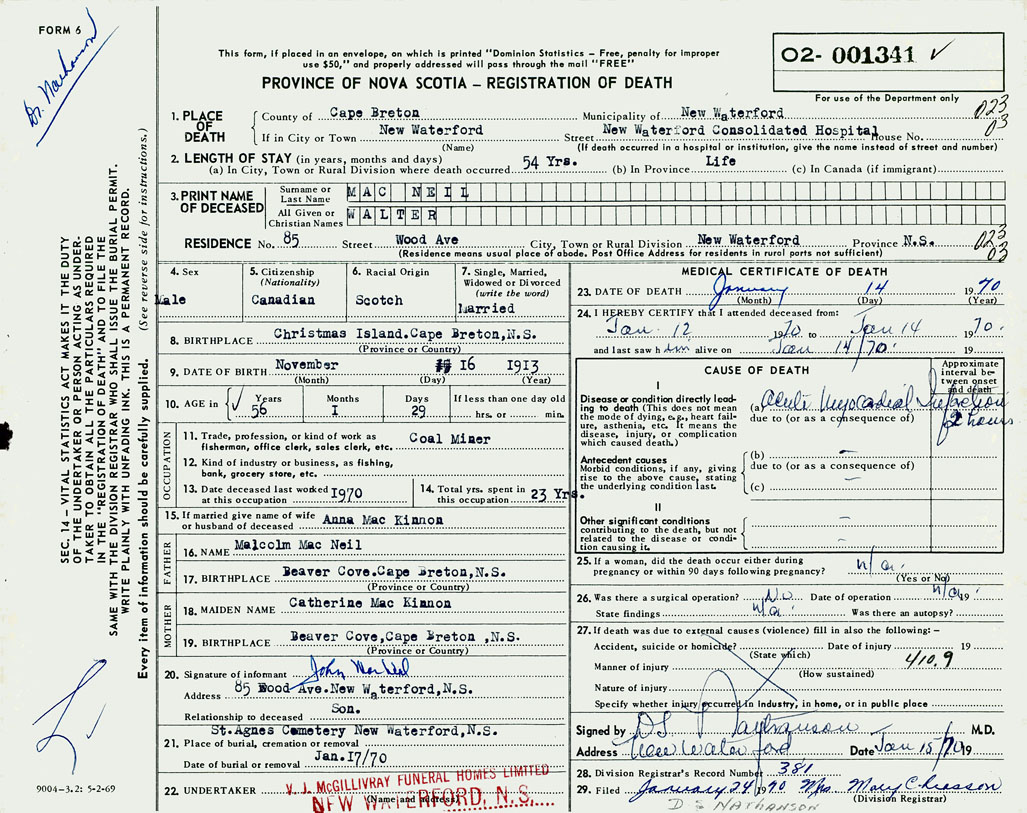 FORM 6
Dr. Nathanson
This form, if placed in an envelope, on which is printed "Dominion Statistics – Free, penalty for improper
use $50," and properly addressed will pass through the mail "FREE"
PROVINCE OF NOVA SCOTIA – REGISTRATION OF DEATH
02- 001341 ✓
For use of the Department only
1. PLACE OF DEATH
County of Cape Breton Municipality of New Waterford 023
If in City or Town New Waterford Street New Waterford Consolidated Hospital House No. 03
(Name) (If death occurred in a hospital or institution, give the name instead of street and number)
2. LENGTH OF STAY (in years, months and days)
(a) In City, Town or Rural Division where death occurred 54 Yrs. (b) In Province Life (c) In Canada (if immigrant)
3. PRINT NAME OF DECEASED
Surname or Last Name MAC NEIL
All Given or Christian Names WALTER
RESIDENCE No. 85 Street Wood Ave City, Town or Rural Division New Waterford Province N.S. 023
(Residence means usual place of abode. Post Office Address for residents in rural parts not sufficient) 03
4. Sex
Male
5. Citizenship
(Nationality)
Canadian
6. Racial Origin
Scotch
7. Single, Married,
Widowed or Divorced
(write the word)
Married
8. BIRTHPLACE Christmas Island.Cape Breton,N.S.
(Province or Country)
9. DATE OF BIRTH November 16 1913
(Month) (Day) (Year)
10. AGE in ✓ Years Months Days If less than one day old
56 I 29 hrs. or min.
OCCUPATION
11. Trade, profession, or kind of work as
fisherman, office clerk, sales clerk, etc. Coal Miner
12. Kind of industry or business, as fishing,
bank, grocery store, etc.
13. Date deceased last worked
at this occupation I970
14. Total yrs. spent in
this occupation 23 Yrs.
15. If married give name of wife
or husband of deceased Anna Mac Kinnon
FATHER
16. NAME Malcolm Mac Neil
17. BIRTHPLACE Beaver Cove.Cape Breton,N.S.
(Province or Country)
MOTHER
18. MAIDEN NAME Catherine Mac Kinnon
19. BIRTHPLACE Beaver Cove,Cape Breton ,N.S.
(Province or Country)
20. Signature of informant John Mac Neil
Address 85 Wood Ave.New Waterford,N.S.
Relationship to deceased Son.
St.Agnes Cemetery New Waterford,N.S.
21. Place of burial, cremation or removal
Date of burial or removal Jan.I7/70
22. UNDERTAKER V. J. McGILLIVRAY FUNERAL HOMES LIMITED
(Name and address)
NEW WATERFORD, N. S.
MEDICAL CERTIFICATE OF DEATH
23. DATE OF DEATH January 14 1970
(Month) (Day) (Year)
24. I HEREBY CERTIFY that I attended deceased from:
Jan. 12 1970 to Jan 14 1970.
and last saw him alive on Jan 14/70. 19
CAUSE OF DEATH
Approximate
interval be-
tween onset
and death
I
Disease or condition directly lead-
ing to death (This does not mean
the mode of dying, e.g., heart fail-
ure, asthenia, etc. It means the
disease, injury, or complication
which caused death.)
(a) Acute Myocardial Infarction
due to (or as a consequence of)
2 hours.
Antecedent causes
Morbid conditions, if any, giving
rise to the above cause, stating
the underlying condition last.
(b) –
due to (or as a consequence of)
(c) –
II
Other significant conditions
contributing to the death, but not
related to the disease or condi-
tion causing it.
–
–
25. If a woman, did the death occur either during
pregnancy or within 90 days following pregnancy? n/a.
(Yes or No)
26. Was there a surgical operation? No Date of operation n/a 19
State findings n/a Was there an autopsy?
27. If death was due to external causes (violence) fill in also the following: –
Accident, suicide or homicide? Date of injury 19
(State which)
Manner of injury 410.9
(How sustained)
Nature of injury
Specify whether injury occurred in Industry, in home, or in public place
Signed by DS Nathanson M.D.
Address New Waterford Date Jan 15/70 19
28. Division Registrar's Record Number 381
29. Filed January 24 1970 Mrs. Mary
(Division Registrar)
D S NATHANSON
SEC. 14 – VITAL STATISTICS ACT MAKES IT THE DUTY
OF THE UNDERTAKER OR PERSON ACTING AS UNDER-
TAKER TO OBTAIN ALL THE PARTICULARS REQUIRED
IN THE "REGISTRATION OF DEATH" AND TO FILE THE
SAME WITH THE DIVISION REGISTRAR WHO SHALL ISSUE THE BURIAL PERMIT.
WRITE PLAINLY WITH UNFADING INK. THIS IS A PERMANENT RECORD.
Every item of information should be carefully supplied. (See reverse side for instructions.)
9004–3.2: 5-2-69